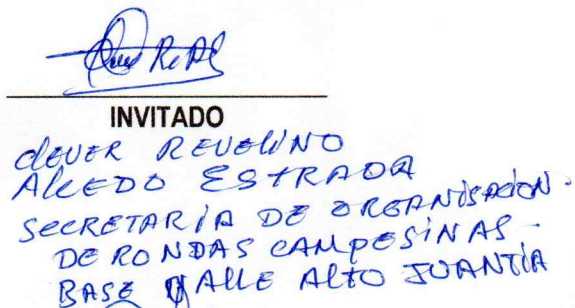 INVITADO
CLEVER REVELINO
ALCEDO ESTRADA
SECRETARÍA DE ORGANISACION.
DE RONDAS CAMPESINAS -
BASE VALLE ALTO JUANTIA